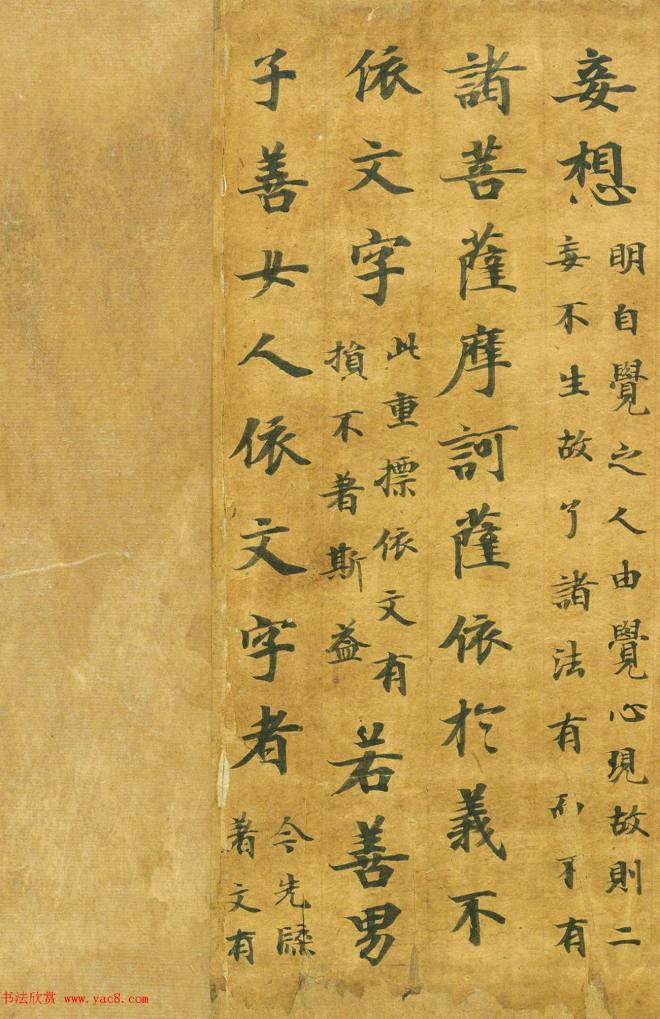 妄想
明自覺之人由覺心現故則二
妄不生故了諸法有不有
諸菩薩摩訶薩依於義不
依文字
此重摽依文有
損不著斯益
若善男
子善女人依文字者
今先牒
著文有
书法欣赏 www.yac8.com